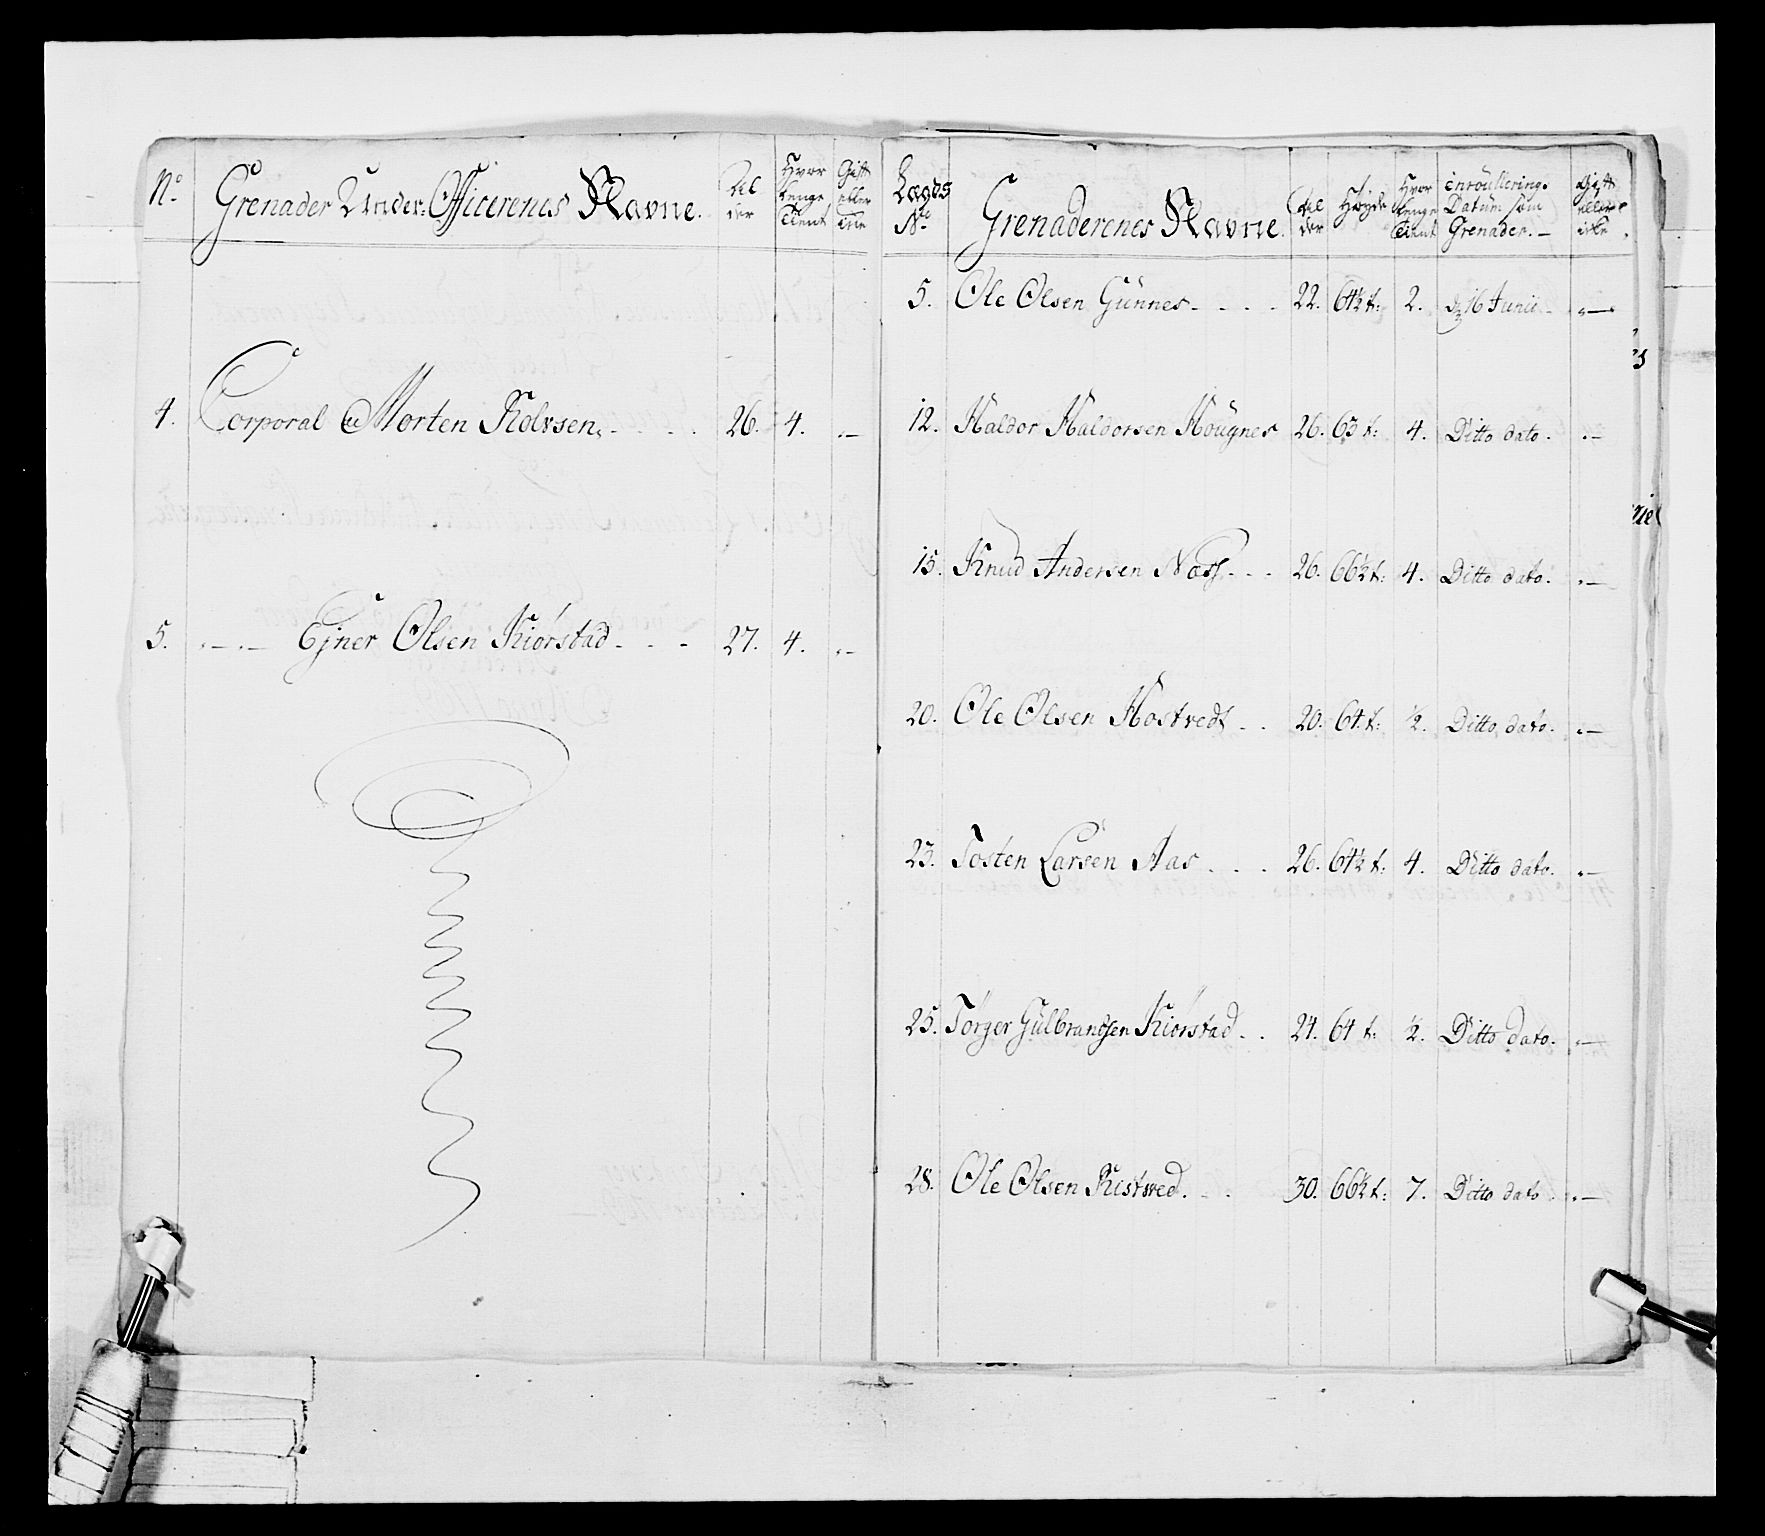 No. Grenader Under-Officerenes Navne. Alder Hvor Lenge Tient Gift eller Eie
4. Corporal Morten Rolvsen. - - - 26. 4. „—
5. „—„— Ejner Olsen Kiørstad - - - 27. 4. „—
Lægds No. Grenaderenes Navne. Alder Høyde Hvor lenge Tient Enroullerings Datum som Grenader. — Gift eller icke
5. Ole Olsen Günnes - - - - 22. 64½ t: 2. d. 16 Junii - „—
12. Haldor Haldorsen Höügnes 26. 63 t: 4. Ditto dato. „—
15. Knud Andersen Næss - - - 26. 66½ t: 4. Ditto dato. „—
20. Ole Olsen Hostvedt - - 20. 64. t: ½. Ditto dato. „—
23. Tosten Larsen Aas - - - 26. 64½ t: 4. Ditto dato. „—
25. Tørger Gülbrandsen Kiørstad - - 24. 64 t: ½. Ditto dato. „—
28. Ole Olsen Ristved. - - 30. 66½ t: 7. Ditto dato „—